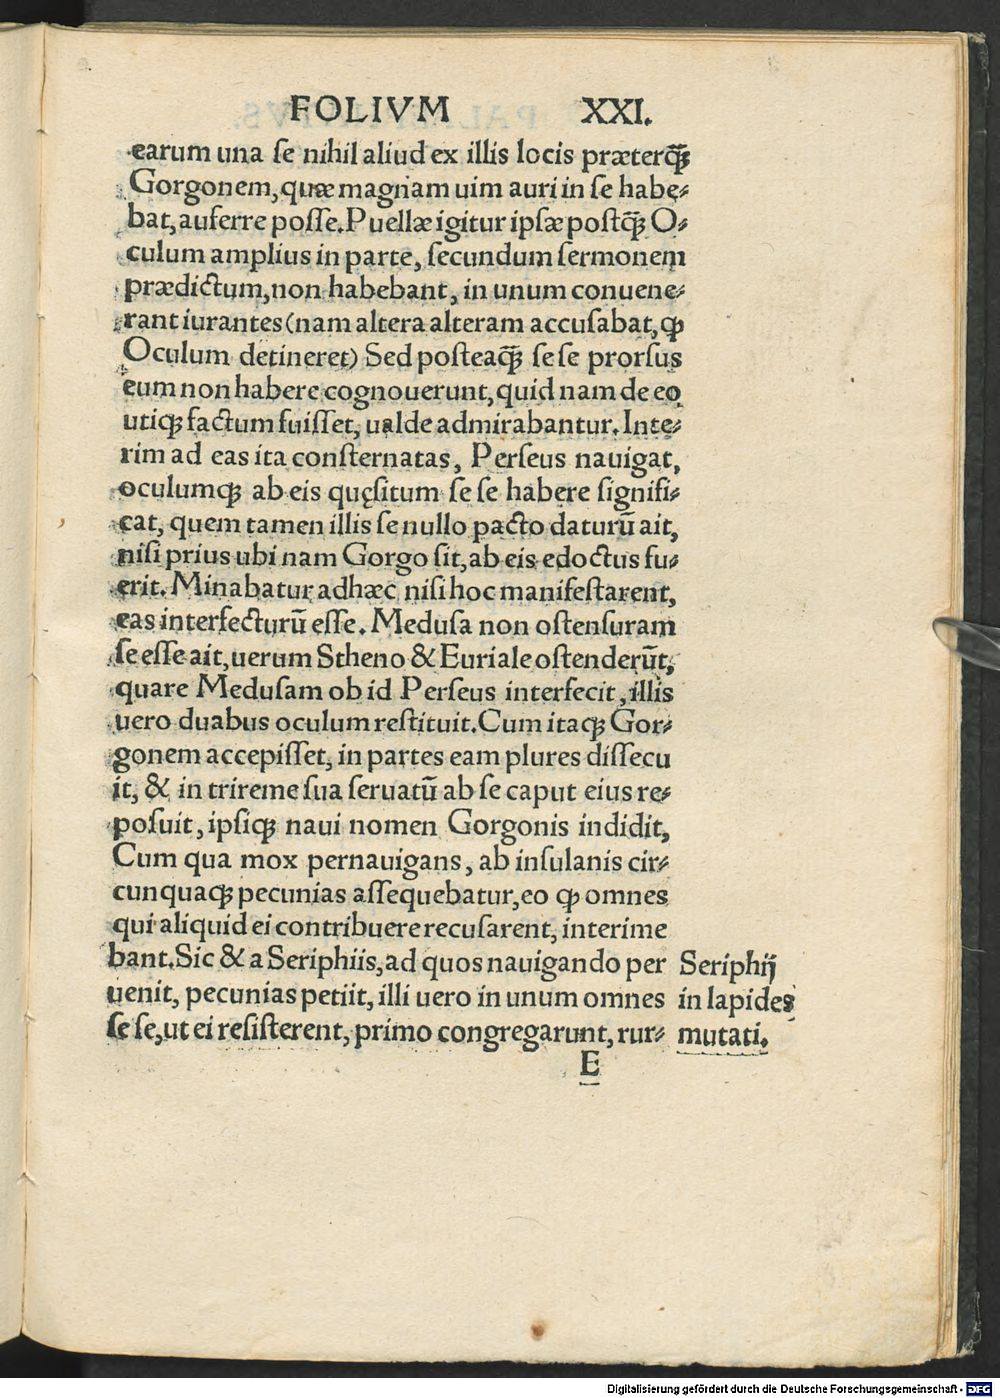 FOLIVM XXI.
earum una se nihil aliud ex illis locis præterq̃ꝫ
Gorgonem, quæ magnam uim auri in se habe⸗
bat, auferre posse. Puellæ igitur ipsæ postq̃ꝫ O⸗
culum amplius in parte, secundum sermonem
prædictum, non habebant, in unum conuene⸗
rant iurantes (nam altera alteram accusabat, ꝙ
Oculum detineret) Sed posteaq̃ꝫ se se prorsus
eum non habere cognouerunt, quid nam de eo
utiqꝫ factum fuisset, ualde admirabantur. Inte⸗
rim ad eas ita consternatas, Perseus nauigat,
oculumqꝫ ab eis quęsitum se se habere signifi⸗
cat, quem tamen illis se nullo pacto daturũ ait,
nisi prius ubi nam Gorgo sit, ab eis edoctus fu⸗
erit. Minabatur adhæc nisi hoc manifestarent,
eas interfecturũ esse. Medusa non ostensuram
se esse ait, uerum Stheno & Euriale ostenderũt,
quare Medusam ob id Perseus interfecit, illis
uero duabus oculum restituit. Cum itaqꝫ Gor⸗
gonem accepisset, in partes eam plures dissecu
it, & in trireme sua seruatũ ab se caput eius re⸗
posuit, ipsiqꝫ naui nomen Gorgonis indidit,
Cum qua mox pernauigans, ab insulanis cir⸗
cunquaqꝫ pecunias assequebatur, eo ꝙ omnes
qui aliquid ei contribuere recusarent, interime
bant. Sic & a Seriphiis, ad quos nauigando per
uenit, pecunias petiit, illi uero in unum omnes
se se, ut ei resisterent, primo congregarunt, rur⸗
Seriphij
in lapides
mutati.
E
Digitalisierung gefördert durch die Deutsche Forschungsgemeinschaft - DFG